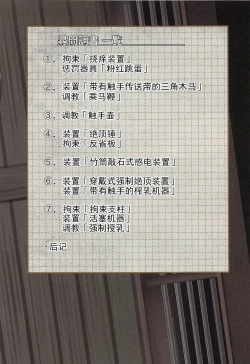 尋問調書一覧
①. 拘束「挠痒装置」
惩罚器具「粉红跳蛋」
②. 装置「带有触手传送带的三角木马」
调教「乘马鞭」
③. 调教「触手壶」
④. 装置「绝顶锤」
拘束「反省板」
⑤. 装置「竹筒敲石式感电装置」
⑥. 装置「穿戴式强制绝顶装置」
装置「带有触手的榨乳机器」
⑦. 拘束「拘束支柱」
装置「活塞机器」
调教「强制授乳」
·后记